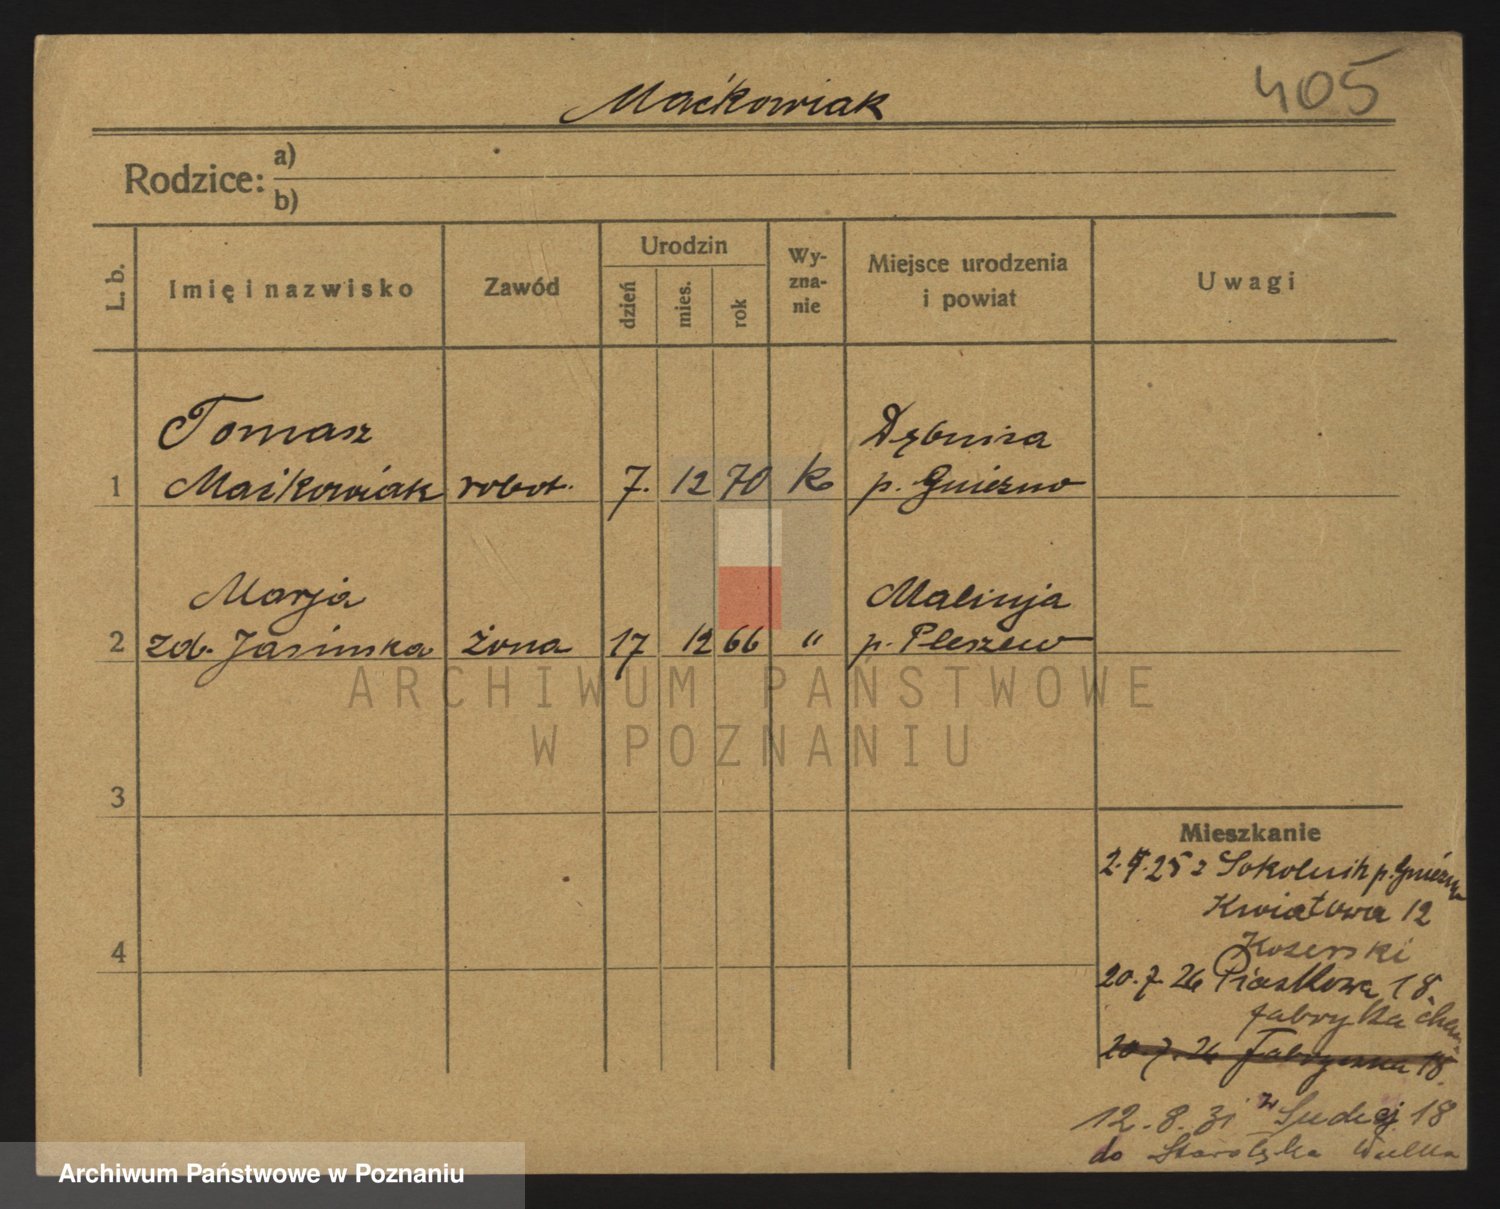 Maćkowiak
405
Rodzice: a)
b)
L. b.
Imię i nazwisko
Zawód
Urodzin
dzień
mies.
rok
Wy-
zna-
nie
Miejsce urodzenia
i powiat
Uwagi
Tomasz
Dębnica
1 Maćkowiak robot. 7. 12 70 k p. Gniezno
Marja
Malinja
2 zd. Jasińska żona 17 12 66 " p. Pleszew
ARCHIWUM PAŃSTWOWE
W POZNANIU
3
4
Mieszkanie
2.9.25 z Sokolnik p. Gniezno
Kwiatowa 12
Koserski
20.7.26 Piaskowa 18.
fabryka
20.7.26 Fabryczna 18
12.8.31 z 18
do Starołęka Wielka
Archiwum Państwowe w Poznaniu